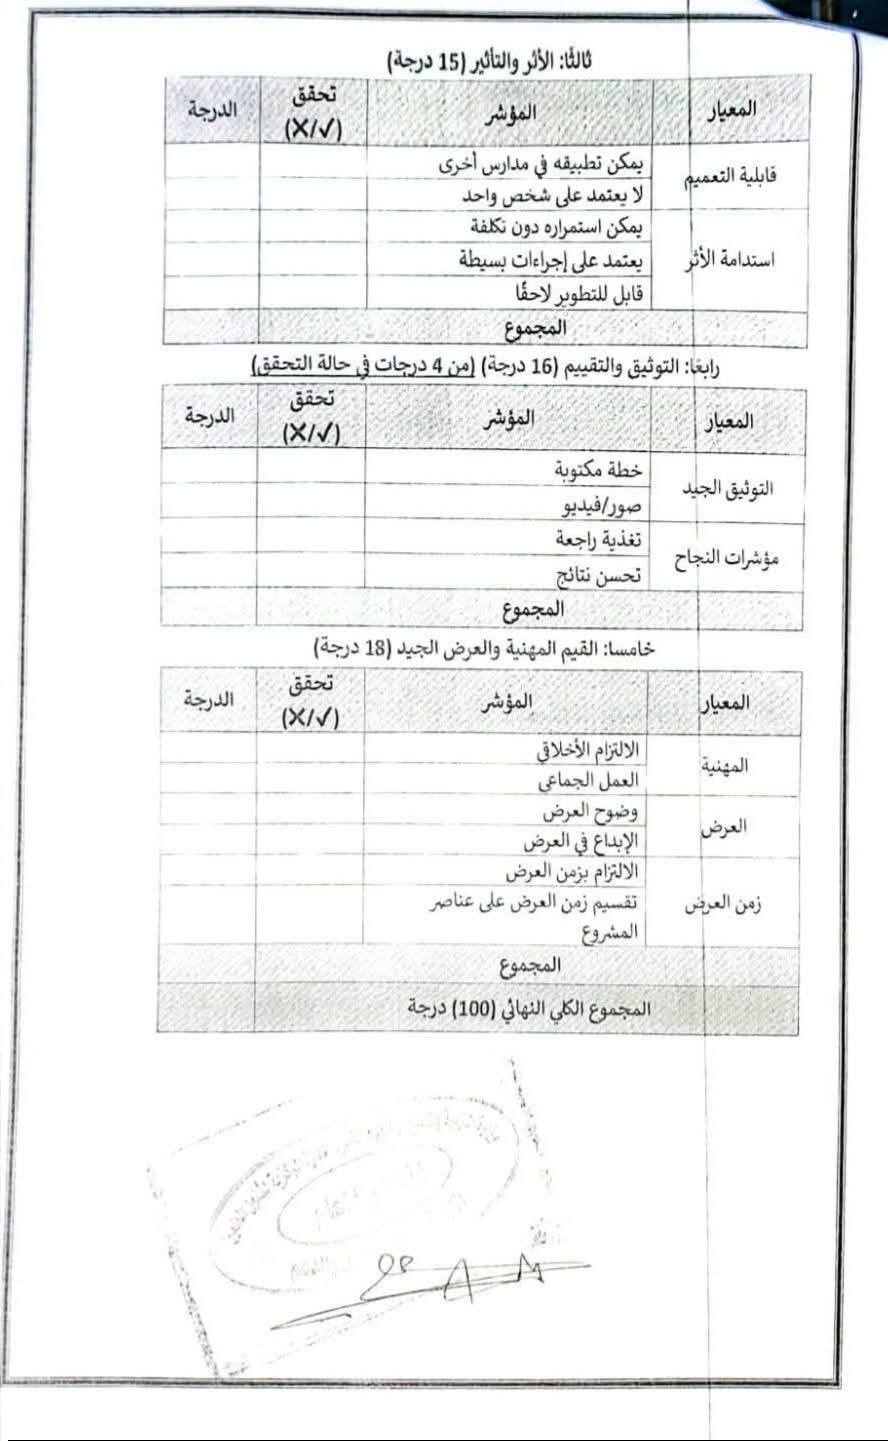 ثالثًا: الأثر والتأثير (15 درجة)
المعيار المؤشر تحقق (✓/X) الدرجة
قابلية التعميم
يمكن تطبيقه في مدارس أخرى
لا يعتمد على شخص واحد
استدامة الأثر
يمكن استمراره دون تكلفة
يعتمد على إجراءات بسيطة
قابل للتطوير لاحقًا
المجموع
رابعًا: التوثيق والتقييم (16 درجة) (من 4 درجات في حالة التحقق)
المعيار المؤشر تحقق (✓/X) الدرجة
التوثيق الجيد
خطة مكتوبة
صور/فيديو
مؤشرات النجاح
تغذية راجعة
تحسن نتائج
المجموع
خامسا: القيم المهنية والعرض الجيد (18 درجة)
المعيار المؤشر تحقق (✓/X) الدرجة
المهنية
الالتزام الأخلاقي
العمل الجماعى
العرض
وضوح العرض
الإبداع في العرض
زمن العرض
الالتزام بزمن العرض
تقسيم زمن العرض على عناصر
المشروع
المجموع
المجموع الكلي النهائي (100) درجة